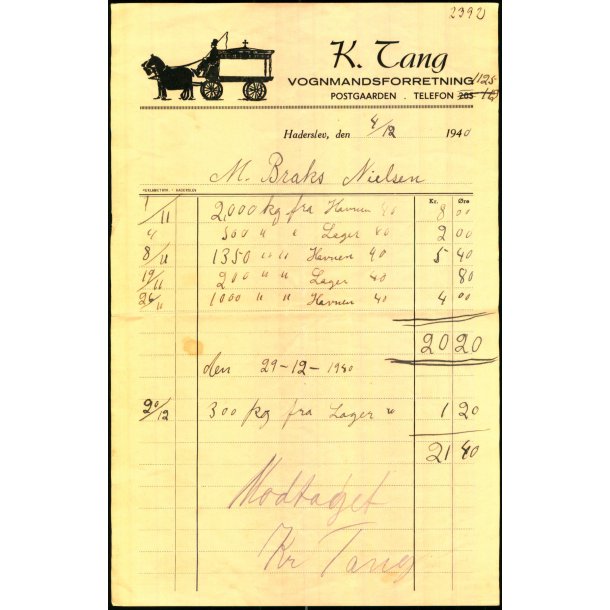 2392
K. Tang
VOGNMANDSFORRETNING 1125
POSTGAARDEN . TELEFON 205
Haderslev, den 4/12 1940
M. Braks Nielsen
Kr. Øre
1/11 2,000 kg fra Havnen 40 8 00
4 500 " " Lager 40 2 00
8/11 1350 " " Havnen 40 5 40
19/11 200 " " Lager 40 80
26/11 1000 " " Havnen 40 4 00
20 20
den 29-12-1940
20/12 300 kg fra Lager " 1 20
21 40
Modtaget
Kr Tang